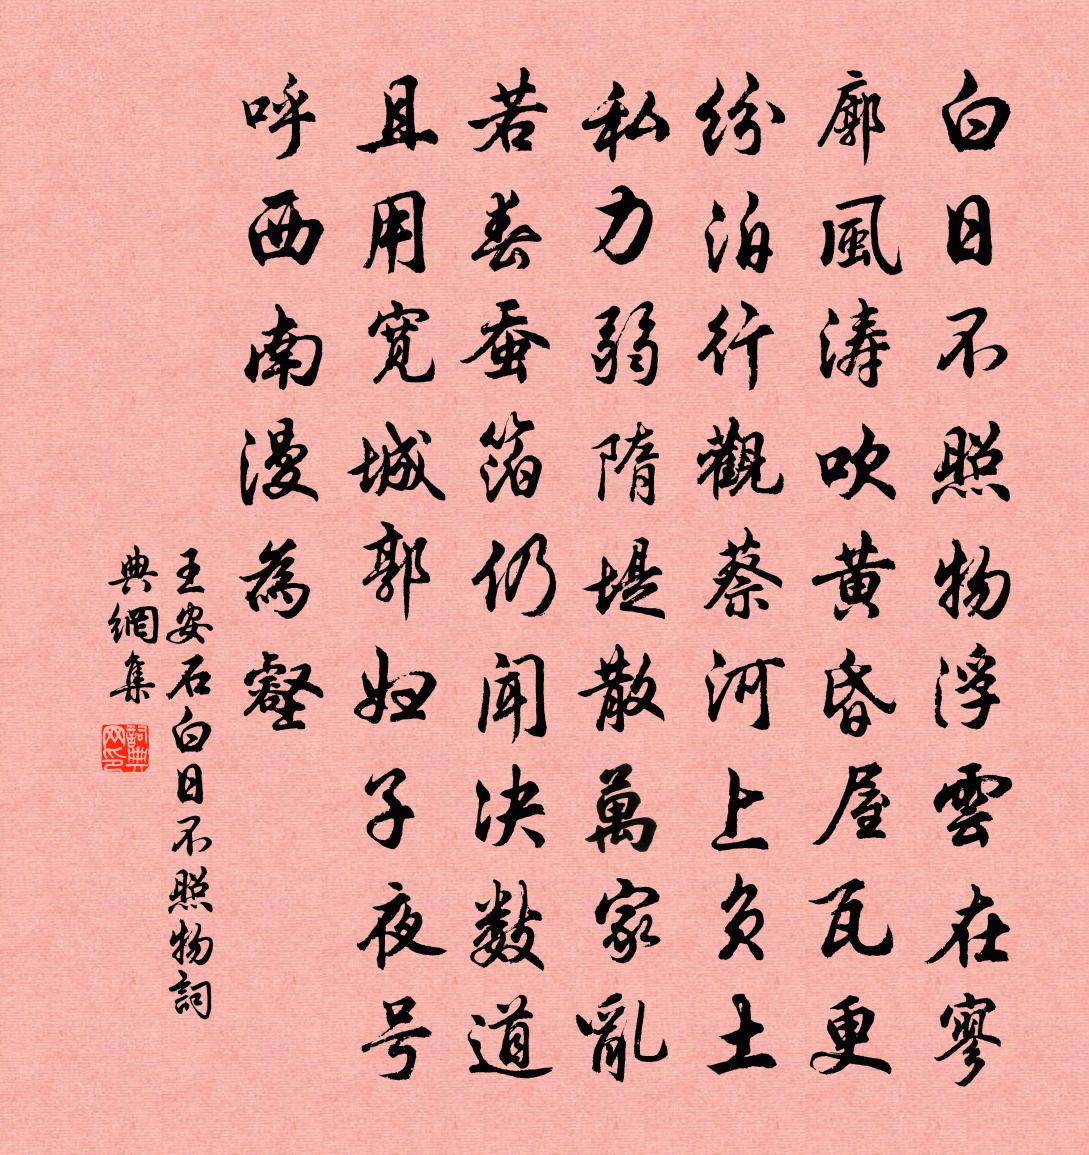 白日不照物浮雲在寥
廓風涛吹黄昏屋瓦更
纷泊行觀蔡河上负土
私力弱隋堤散萬家亂
若春蚕箔仍闻决数道
且用宽城郭妇子夜号
呼西南漫為壑
王安石白日不照物詞
典網集
詞典
网印